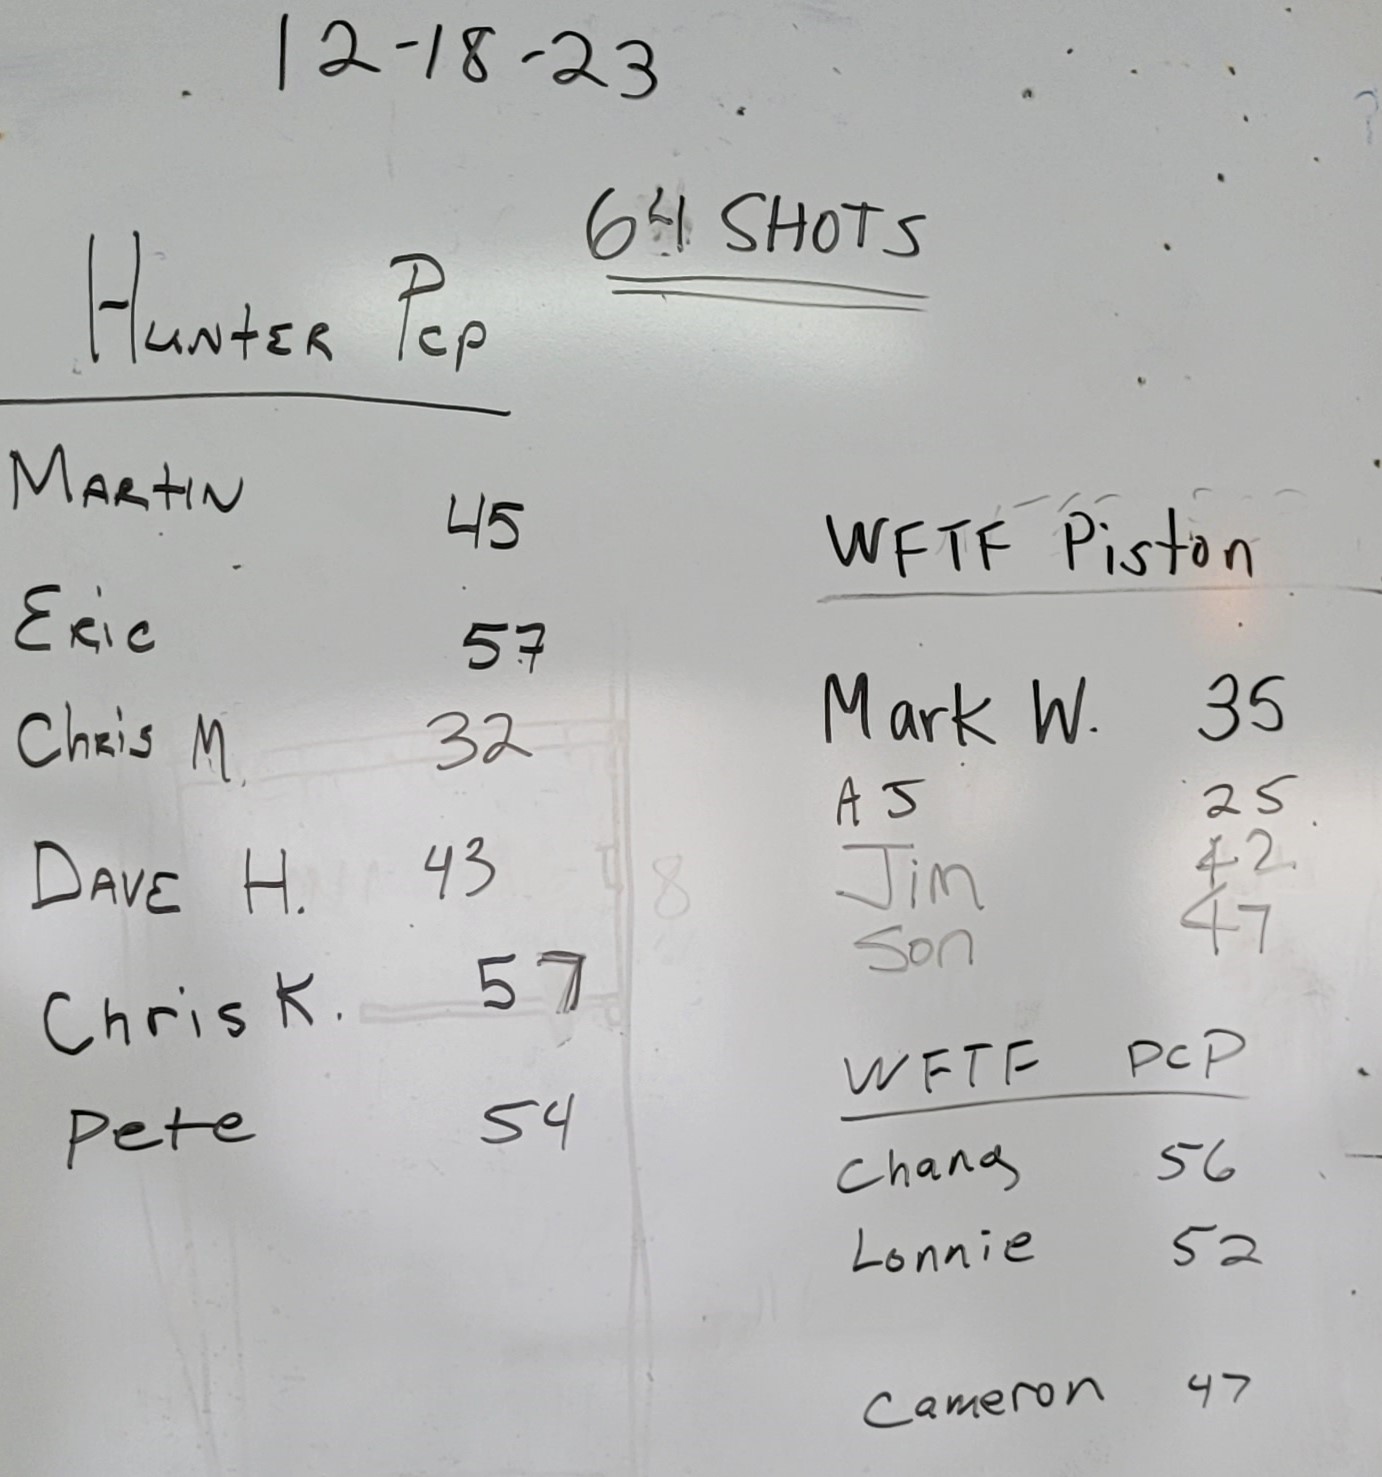 12-18-23
64 SHOTS
HUNTER PCP
MARTIN 45
ERIC 57
Chris M. 32
DAVE H. 43
Chris K. 57
Pete 54
WFTF Piston
Mark W. 35
AJ 25
Jim 42
Son 47
WFTF PCP
Chang 56
Lonnie 52
Cameron 47
8